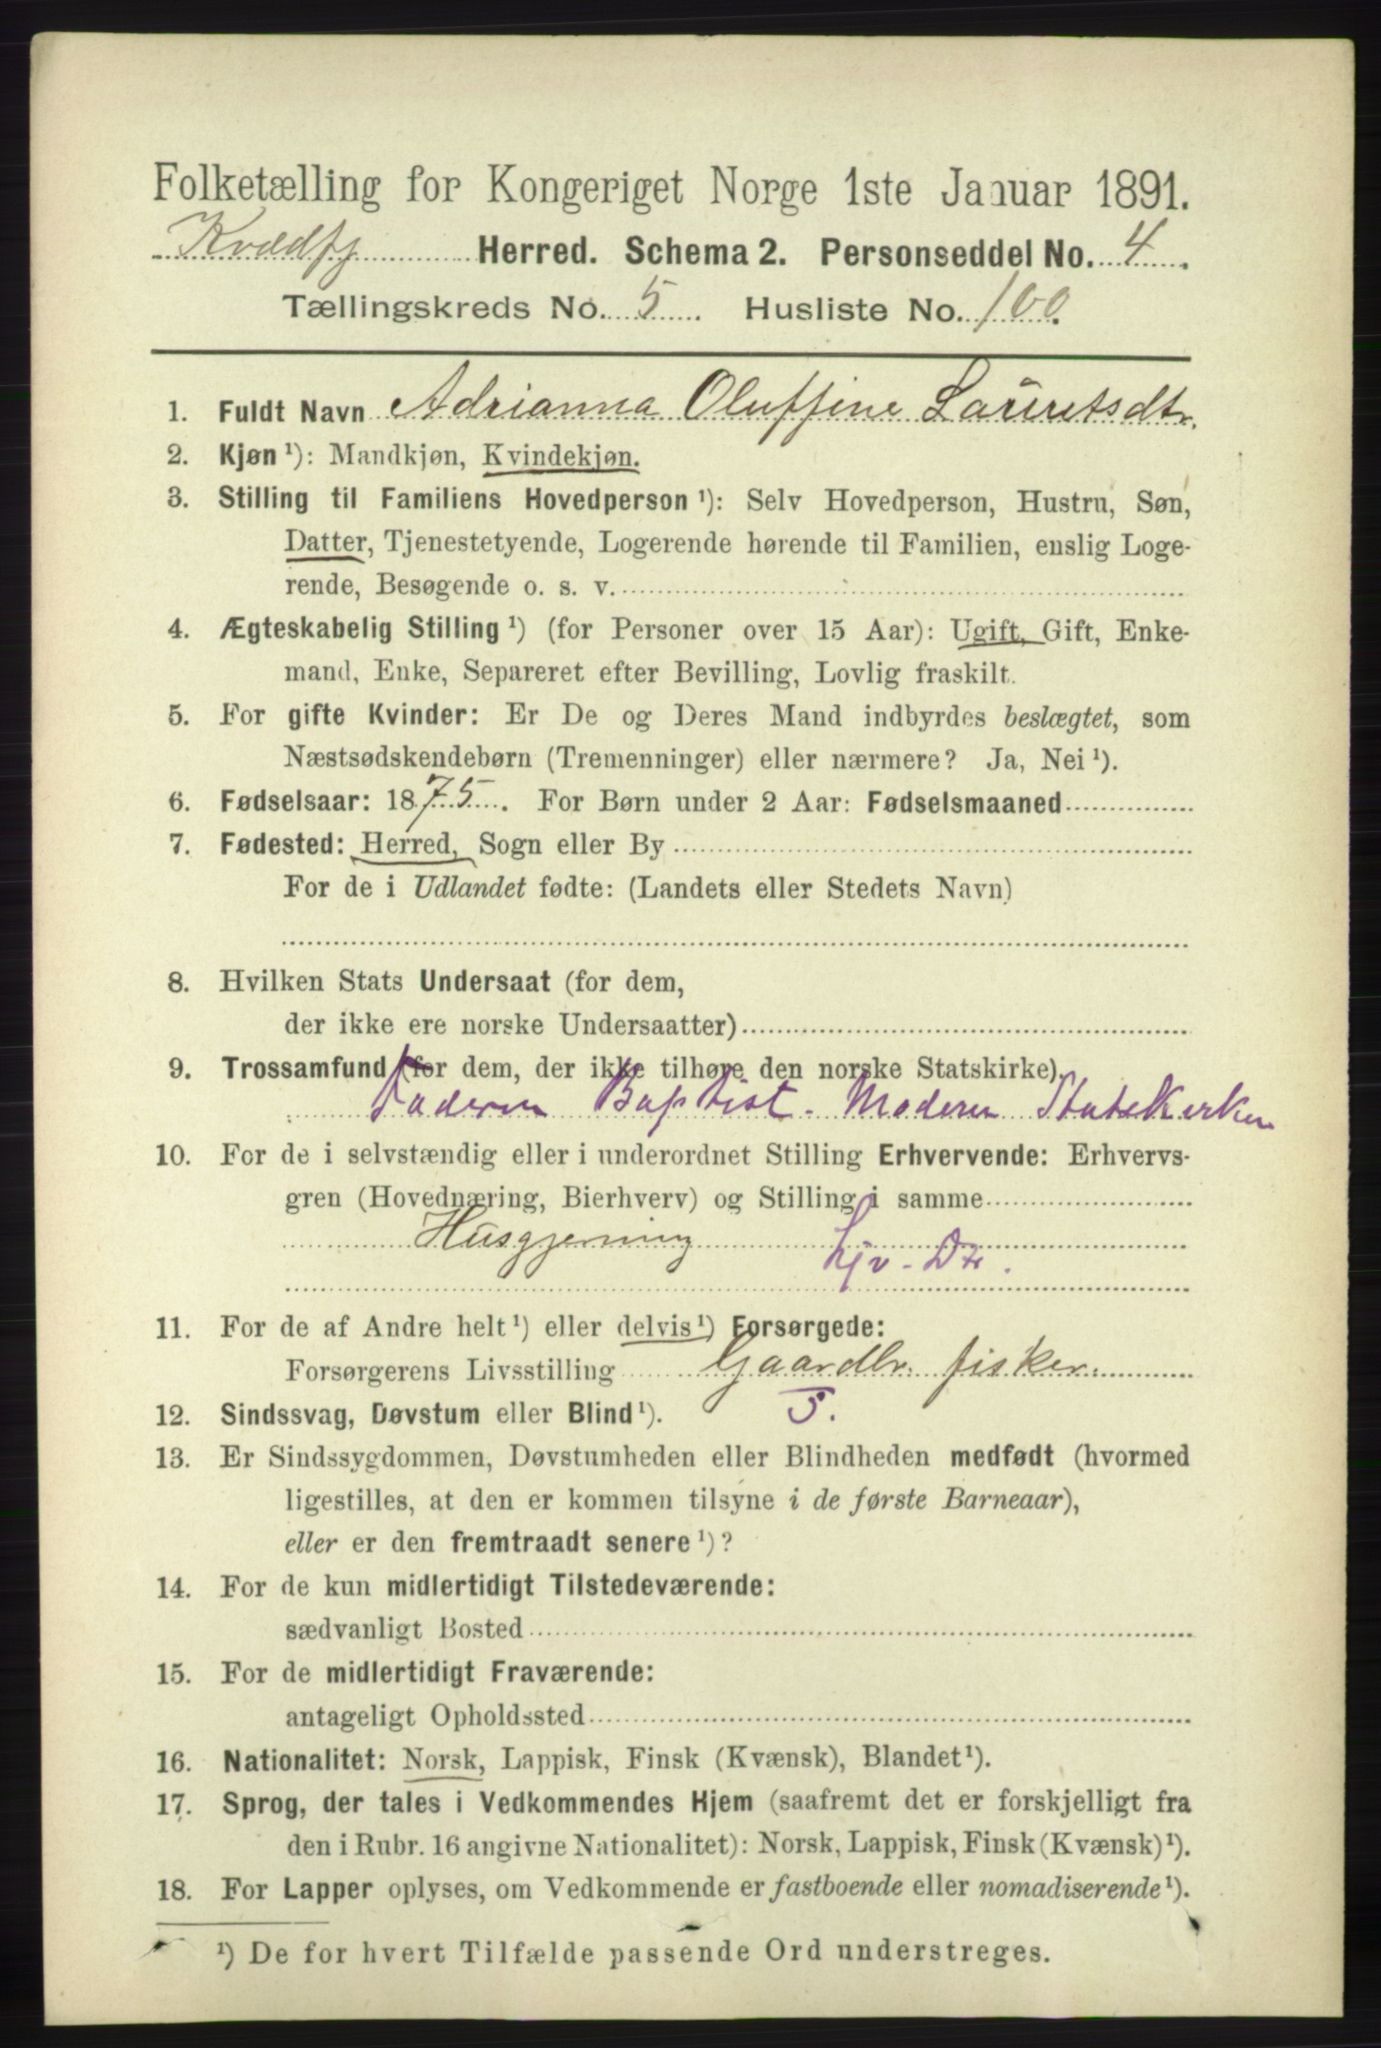 Folketælling for Kongeriget Norge 1ste Januar 1891.
Kvædfj Herred. Schema 2. Personseddel No. 4.
Tællingskreds No. 5. Husliste No. 100.
1. Fuldt Navn Adrianna Oluffine Lauritsdtr.
2. Kjøn ¹): Mandkjøn, Kvindekjøn.
3. Stilling til Familiens Hovedperson ¹): Selv Hovedperson, Hustru, Søn,
Datter, Tjenestetyende, Logerende hørende til Familien, enslig Loge-
rende, Besøgende o. s. v.
4. Ægteskabelig Stilling ¹) (for Personer over 15 Aar): Ugift, Gift, Enke-
mand, Enke, Separeret efter Bevilling, Lovlig fraskilt.
5. For gifte Kvinder: Er De og Deres Mand indbyrdes beslægtet, som
Næstsødskendebørn (Tremenninger) eller nærmere? Ja, Nei ¹).
6. Fødselsaar: 1875. For Børn under 2 Aar: Fødselsmaaned
7. Fødested: Herred, Sogn eller By
For de i Udlandet fødte: (Landets eller Stedets Navn)
8. Hvilken Stats Undersaat (for dem,
der ikke ere norske Undersaatter)
9. Trossamfund (for dem, der ikke tilhøre den norske Statskirke)
Faderen Baptist. Moderen Statskirken
10. For de i selvstændig eller i underordnet Stilling Erhvervende: Erhvervs-
gren (Hovednæring, Bierhverv) og Stilling i samme
Husgjerning Hjv. Dtr.
11. For de af Andre helt ¹) eller delvis ¹) Forsørgede:
Forsørgerens Livsstilling Gaardbr. fisker.
12. Sindssvag, Døvstum eller Blind ¹). 5.
13. Er Sindssygdommen, Døvstumheden eller Blindheden medfødt (hvormed
ligestilles, at den er kommen tilsyne i de første Barneaar),
eller er den fremtraadt senere ¹)?
14. For de kun midlertidigt Tilstedeværende:
sædvanligt Bosted
15. For de midlertidigt Fraværende:
antageligt Opholdssted
16. Nationalitet: Norsk, Lappisk, Finsk (Kvænsk), Blandet ¹).
17. Sprog, der tales i Vedkommendes Hjem (saafremt det er forskjelligt fra
den i Rubr. 16 angivne Nationalitet): Norsk, Lappisk, Finsk (Kvænsk) ¹).
18. For Lapper oplyses, om Vedkommende er fastboende eller nomadiserende ¹).
¹) De for hvert Tilfælde passende Ord understreges.